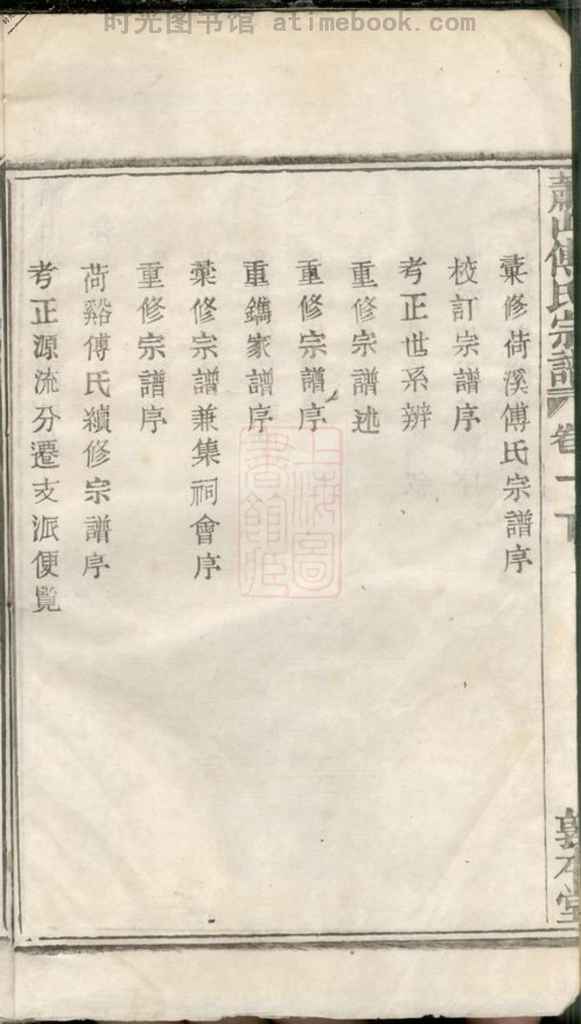 时光图书馆 atimebook.com
蕭山傅氏宗譜
卷一
敦本堂
彚修荷溪傅氏宗譜序
校訂宗譜序
考正世系辨
重修宗譜述
重修宗譜序
重鐫家譜序
彚修宗譜兼集祠會序
重修宗譜序
荷谿傅氏續修宗譜序
考正源流分遷支派便覽
上海圖
書館藏